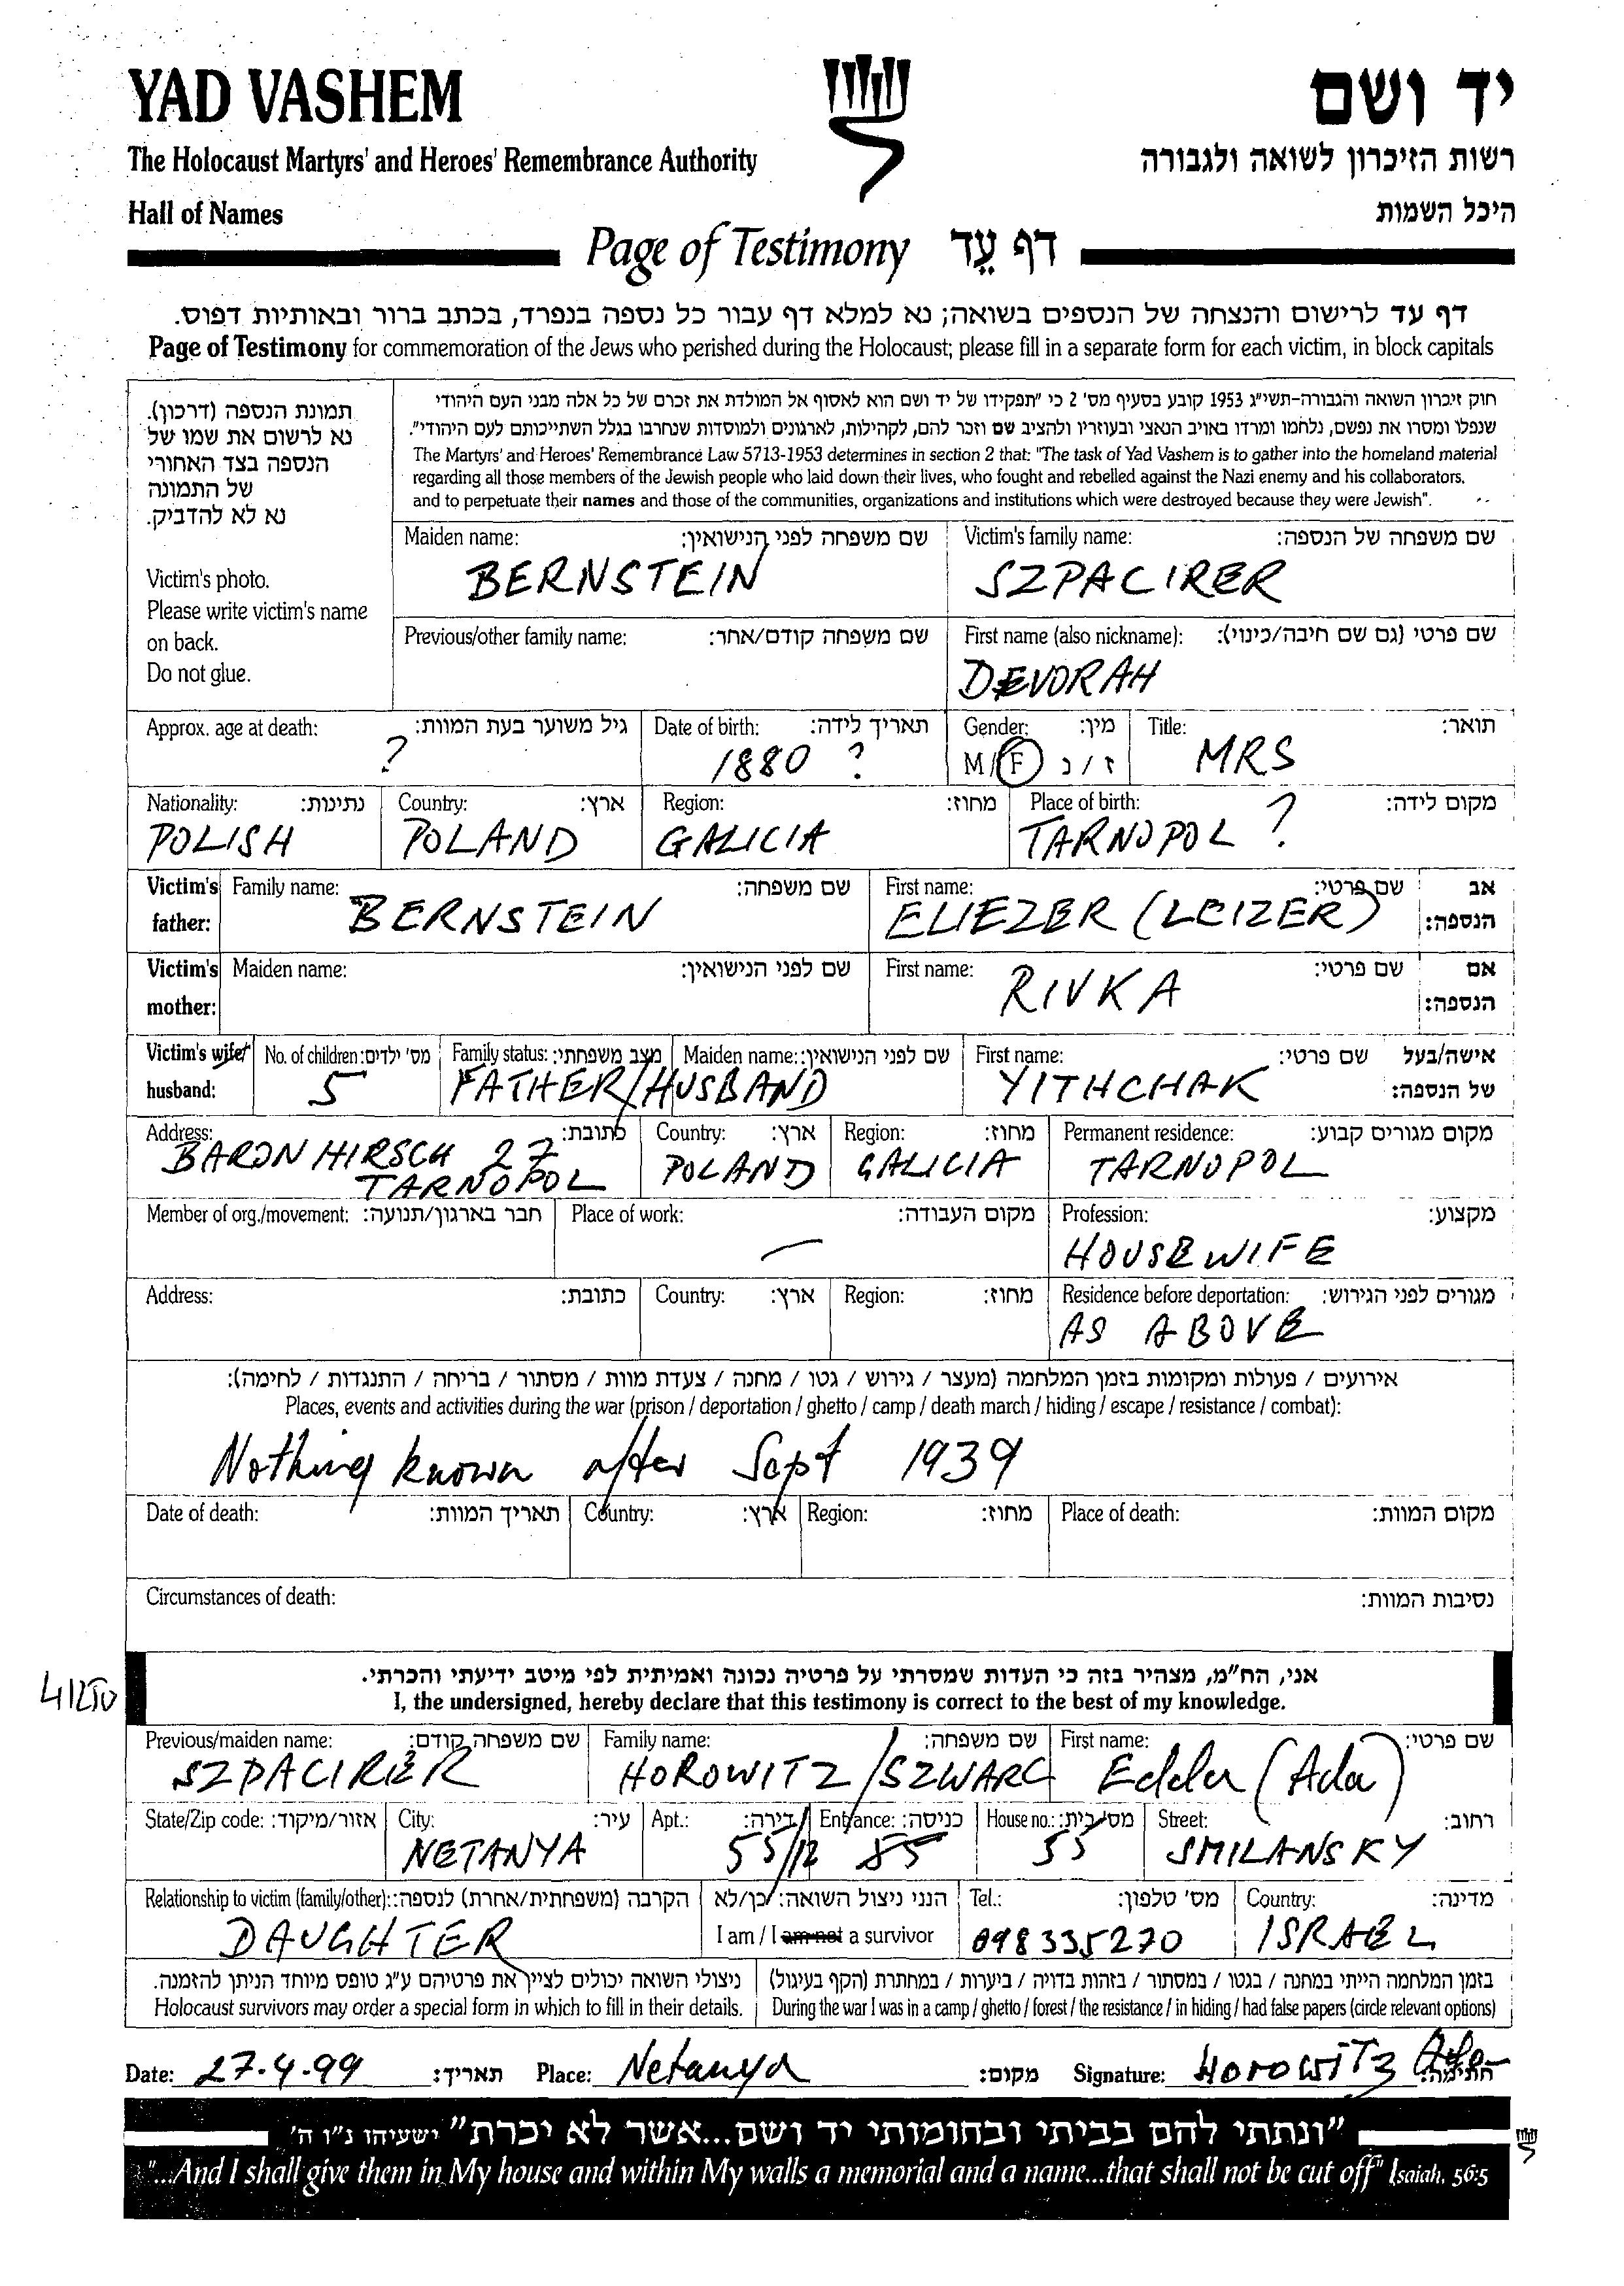 YAD VASHEM
יד ושם
The Holocaust Martyrs' and Heroes' Remembrance Authority
רשות הזיכרון לשואה ולגבורה
Hall of Names
היכל השמות
Page of Testimony דף עֵד
דף עד לרישום והנצחה של הנספים בשואה; נא למלא דף עבור כל נספה בנפרד, בכתב ברור ובאותיות דפוס.
Page of Testimony for commemoration of the Jews who perished during the Holocaust; please fill in a separate form for each victim, in block capitals
תמונת הנספה (דרכון).
נא לרשום את שמו של
הנספה בצד האחורי
של התמונה
נא לא להדביק.
Victim's photo.
Please write victim's name
on back.
Do not glue.
חוק זיכרון השואה והגבורה-תשי"ג 1953 קובע בסעיף מס' 2 כי "תפקידו של יד ושם הוא לאסוף אל המולדת את זכרם של כל אלה מבני העם היהודי
שנפלו ומסרו את נפשם, נלחמו ומרדו באויב הנאצי ובעוזריו ולהציב שם וזכר להם, לקהילות, לארגונים ולמוסדות שנחרבו בגלל השתייכותם לעם היהודי".
The Martyrs' and Heroes' Remembrance Law 5713-1953 determines in section 2 that: "The task of Yad Vashem is to gather into the homeland material
regarding all those members of the Jewish people who laid down their lives, who fought and rebelled against the Nazi enemy and his collaborators,
and to perpetuate their names and those of the communities, organizations and institutions which were destroyed because they were Jewish".
Maiden name: שם משפחה לפני הנישואין:
BERNSTEIN
Victim's family name: שם משפחה של הנספה:
SZPACIRER
Previous/other family name: שם משפחה קודם/אחר:
First name (also nickname): שם פרטי (גם שם חיבה/כינוי):
DEVORAH
Approx. age at death: גיל משוער בעת המוות:
?
Date of birth: תאריך לידה:
1880 ?
Gender: מין:
M/F ז / נ
Title: תואר:
MRS
Nationality: נתינות:
POLISH
Country: ארץ:
POLAND
Region: מחוז:
GALICIA
Place of birth: מקום לידה:
TARNOPOL ?
Victim's father:
Family name: שם משפחה:
BERNSTEIN
First name: שם פרטי:
ELIEZER (LEIZER)
אב הנספה:
Victim's mother:
Maiden name: שם לפני הנישואין:
First name: שם פרטי:
RIVKA
אם הנספה:
Victim's wife/ husband:
No. of children: מס' ילדים:
5
Family status: מצב משפחתי:
Maiden name: שם לפני הנישואין:
FATHER/HUSBAND
First name: שם פרטי:
YITHCHAK
אישה/בעל של הנספה:
Address: כתובת:
BARON HIRSCH 27
TARNOPOL
Country: ארץ:
POLAND
Region: מחוז:
GALICIA
Permanent residence: מקום מגורים קבוע:
TARNOPOL
Member of org./movement: חבר בארגון/תנועה:
Place of work: מקום העבודה:
—
Profession: מקצוע:
HOUSEWIFE
Address: כתובת:
Country: ארץ:
Region: מחוז:
Residence before deportation: מגורים לפני הגירוש:
AS ABOVE
אירועים / פעולות ומקומות בזמן המלחמה (מעצר / גירוש / גטו / מחנה / צעדת מוות / מסתור / בריחה / התנגדות / לחימה):
Places, events and activities during the war (prison / deportation / ghetto / camp / death march / hiding / escape / resistance / combat):
Nothing known after Sept 1939
Date of death: תאריך המוות:
Country: ארץ:
Region: מחוז:
Place of death: מקום המוות:
Circumstances of death: נסיבות המוות:
אני, הח"מ, מצהיר בזה כי העדות שמסרתי על פרטיה נכונה ואמיתית לפי מיטב ידיעתי והכרתי.
I, the undersigned, hereby declare that this testimony is correct to the best of my knowledge.
Previous/maiden name: שם משפחה קודם:
SZPACIRER
Family name: שם משפחה:
HOROWITZ/SZWARC
First name: שם פרטי:
Edda (Ada)
State/Zip code: אזור/מיקוד:
City: עיר:
NETANYA
Apt.: דירה:
55/12
Entrance: כניסה:
55
House no.: מס' בית:
55
Street: רחוב:
SMILANSKY
Relationship to victim (family/other): הקרבה (משפחתית/אחרת) לנספה:
DAUGHTER
הנני ניצול השואה: כן/לא
I am / I am not a survivor
Tel.: מס' טלפון:
098335270
Country: מדינה:
ISRAEL
ניצולי השואה יכולים לציין את פרטיהם ע"ג טופס מיוחד הניתן להזמנה.
Holocaust survivors may order a special form in which to fill in their details.
בזמן המלחמה הייתי במחנה / בגטו / במסתור / בזהות בדויה / ביערות / במחתרת (הקף בעיגול)
During the war I was in a camp / ghetto / forest / the resistance / in hiding / had false papers (circle relevant options)
Date: 27.4.99 תאריך: Place: Netanya מקום: Signature: Horowitz Ada חתימה:
"ונתתי להם בביתי ובחומותי יד ושם...אשר לא יכרת" ישעיהו נ"ו ה'
"...And I shall give them in My house and within My walls a memorial and a name...that shall not be cut off" Isaiah, 56:5